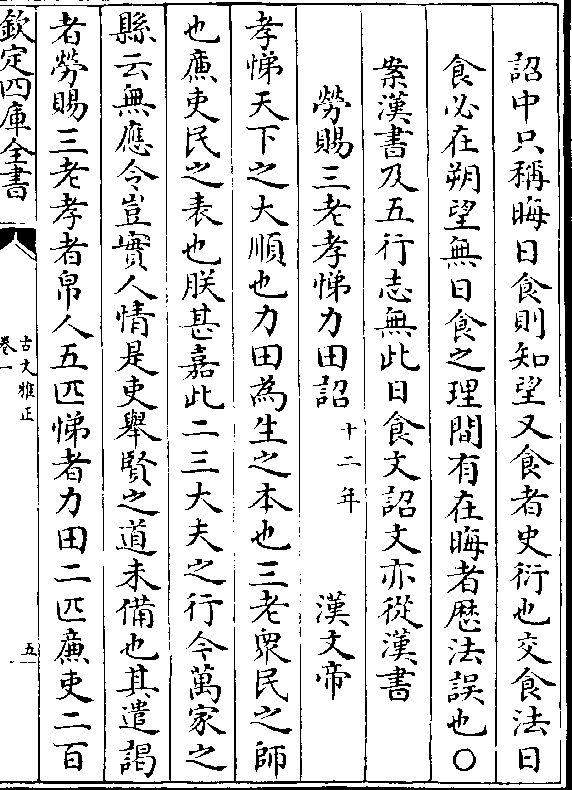 詔中只稱晦日食則知望又食者史衍也交食法日
食必在朔望無日食之理間有在晦者厯法誤也○
案漢書及五行志無此日食文詔文亦從漢書
勞賜三老孝悌力田詔十二年 漢文帝
孝悌天下之大順也力田為生之本也三老衆民之師
也亷吏民之表也朕甚嘉此二三大夫之行今萬家之
縣云無應令豈實人情是吏舉賢之道未備也其遣謁
者勞賜三老孝者帛人五匹悌者力田二匹亷吏二百
欽定四庫全書
古文雅正
卷一
五